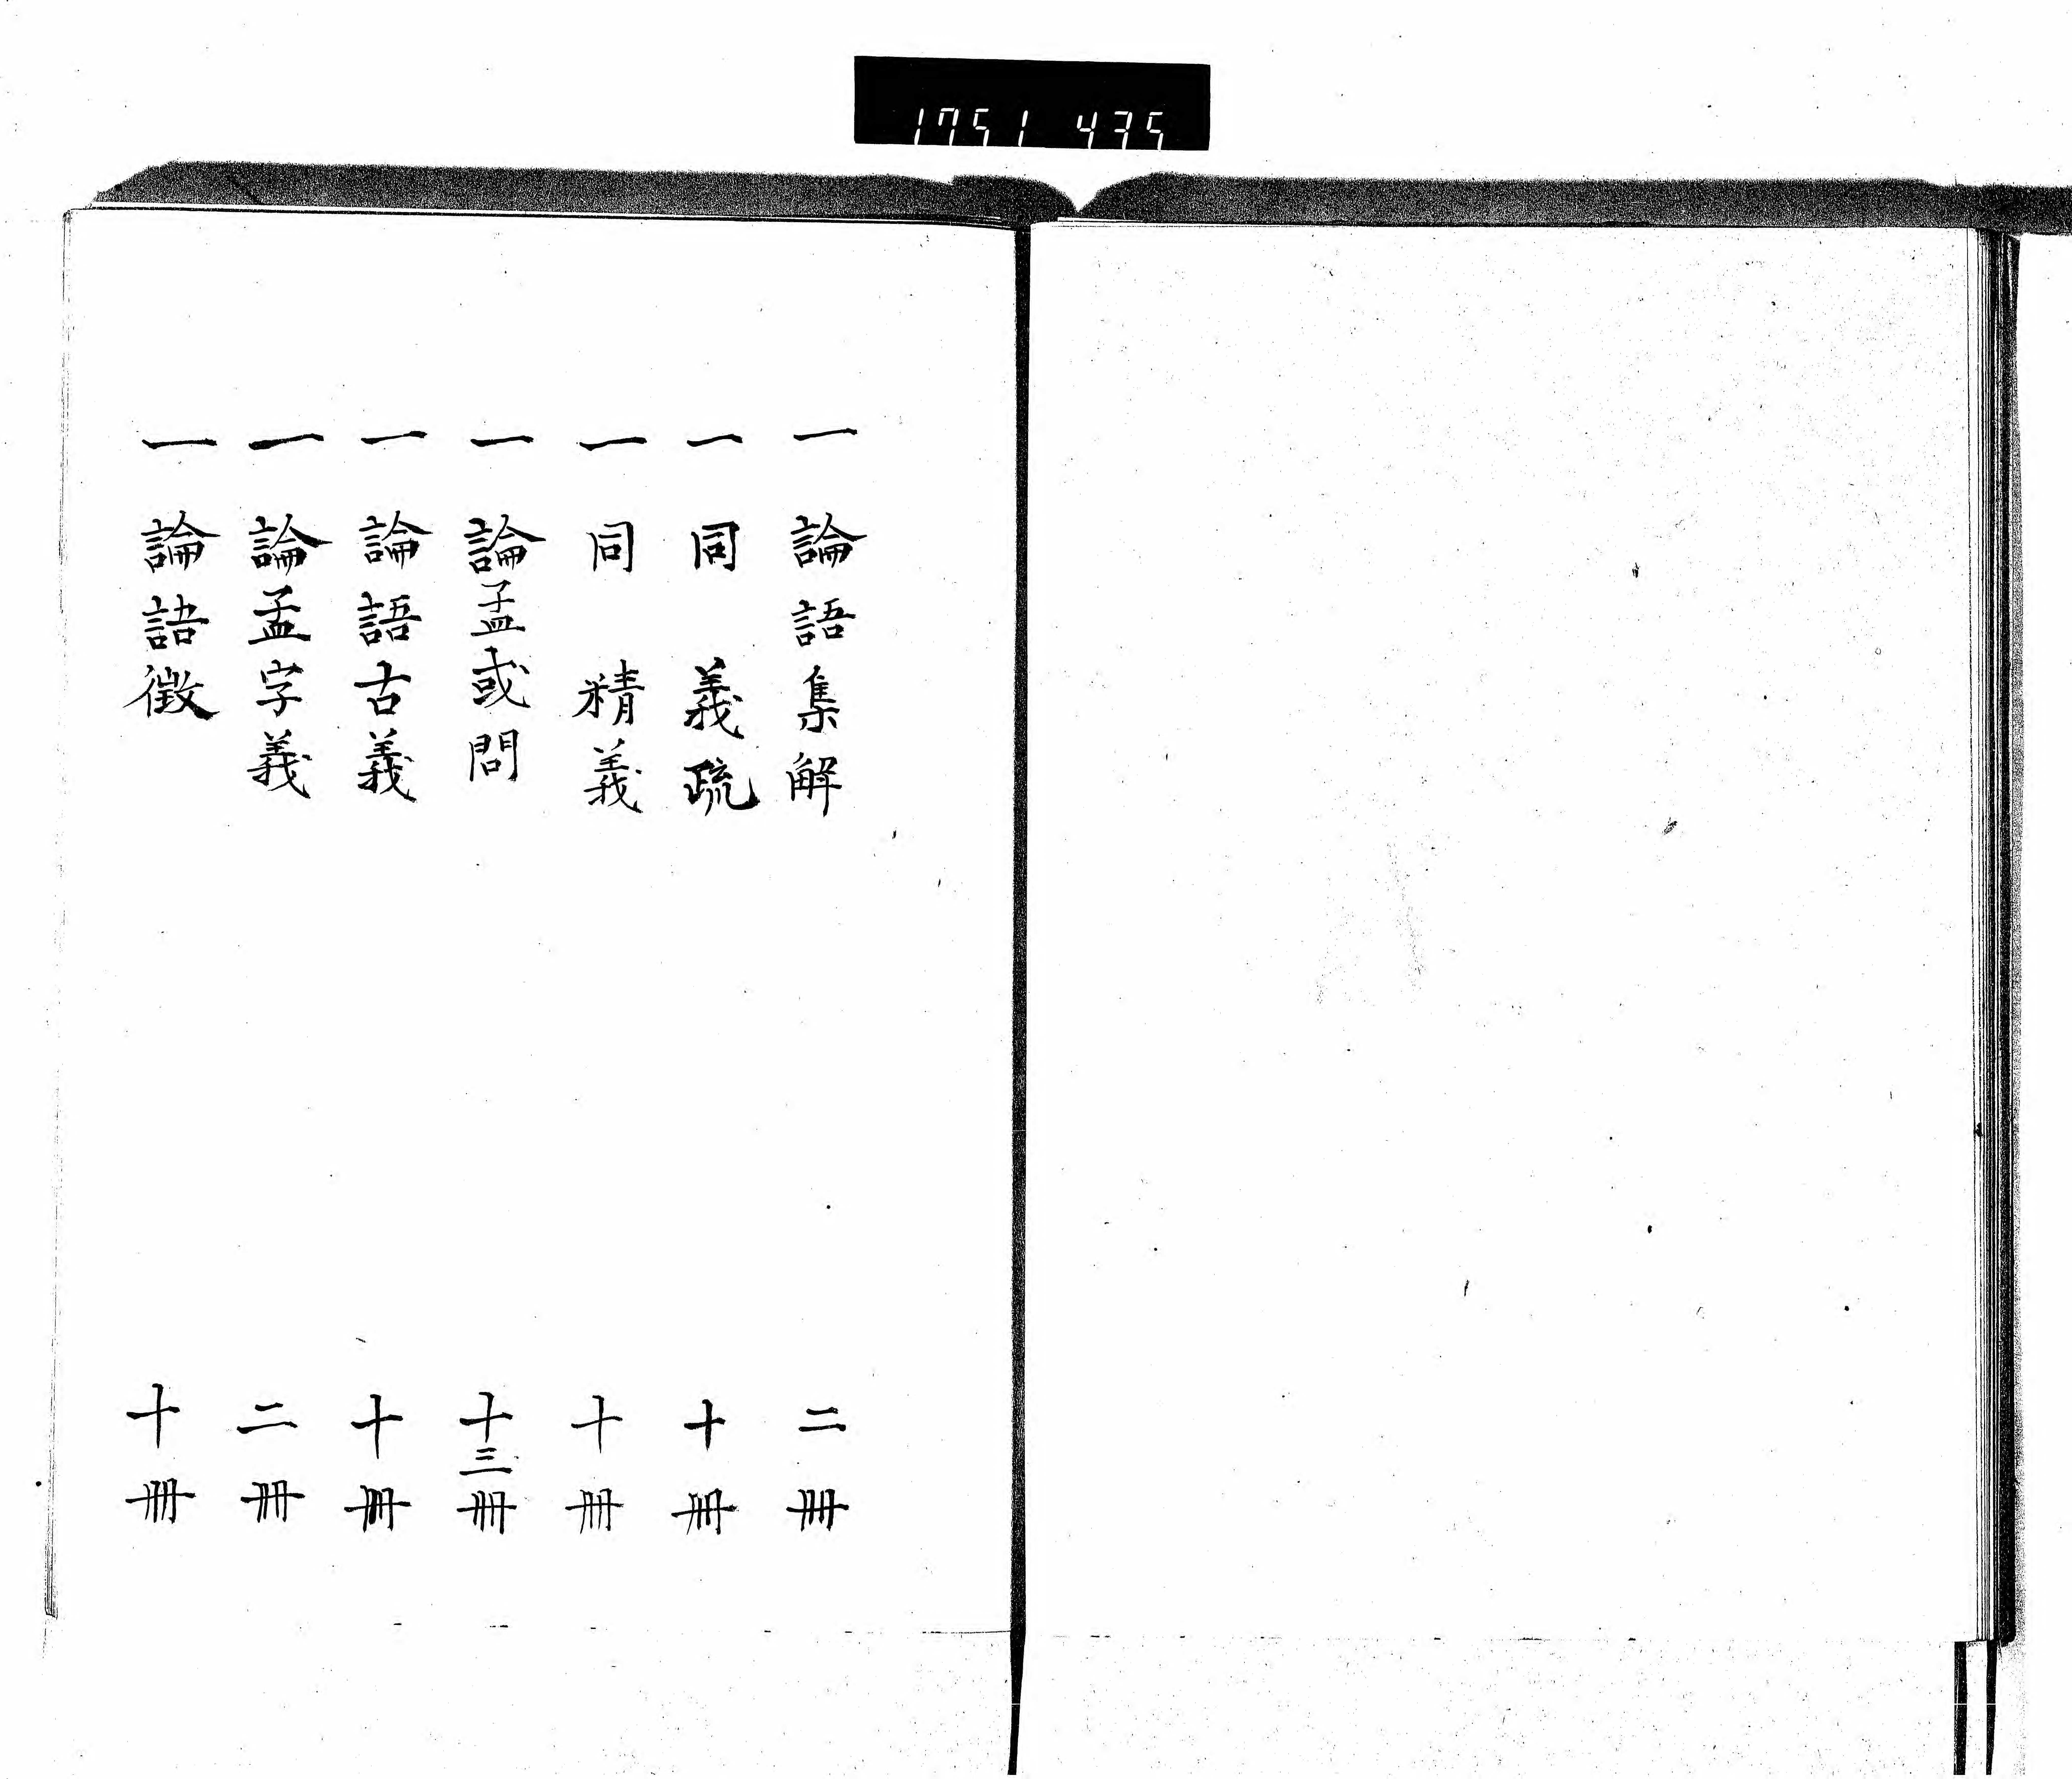 1751 435
一 論語集解 二冊
一 同 義疏 十冊
一 同 精義 十冊
一 論孟或問 十三冊
一 論語古義 十冊
一 論孟字義 二冊
一 論語徴 十冊